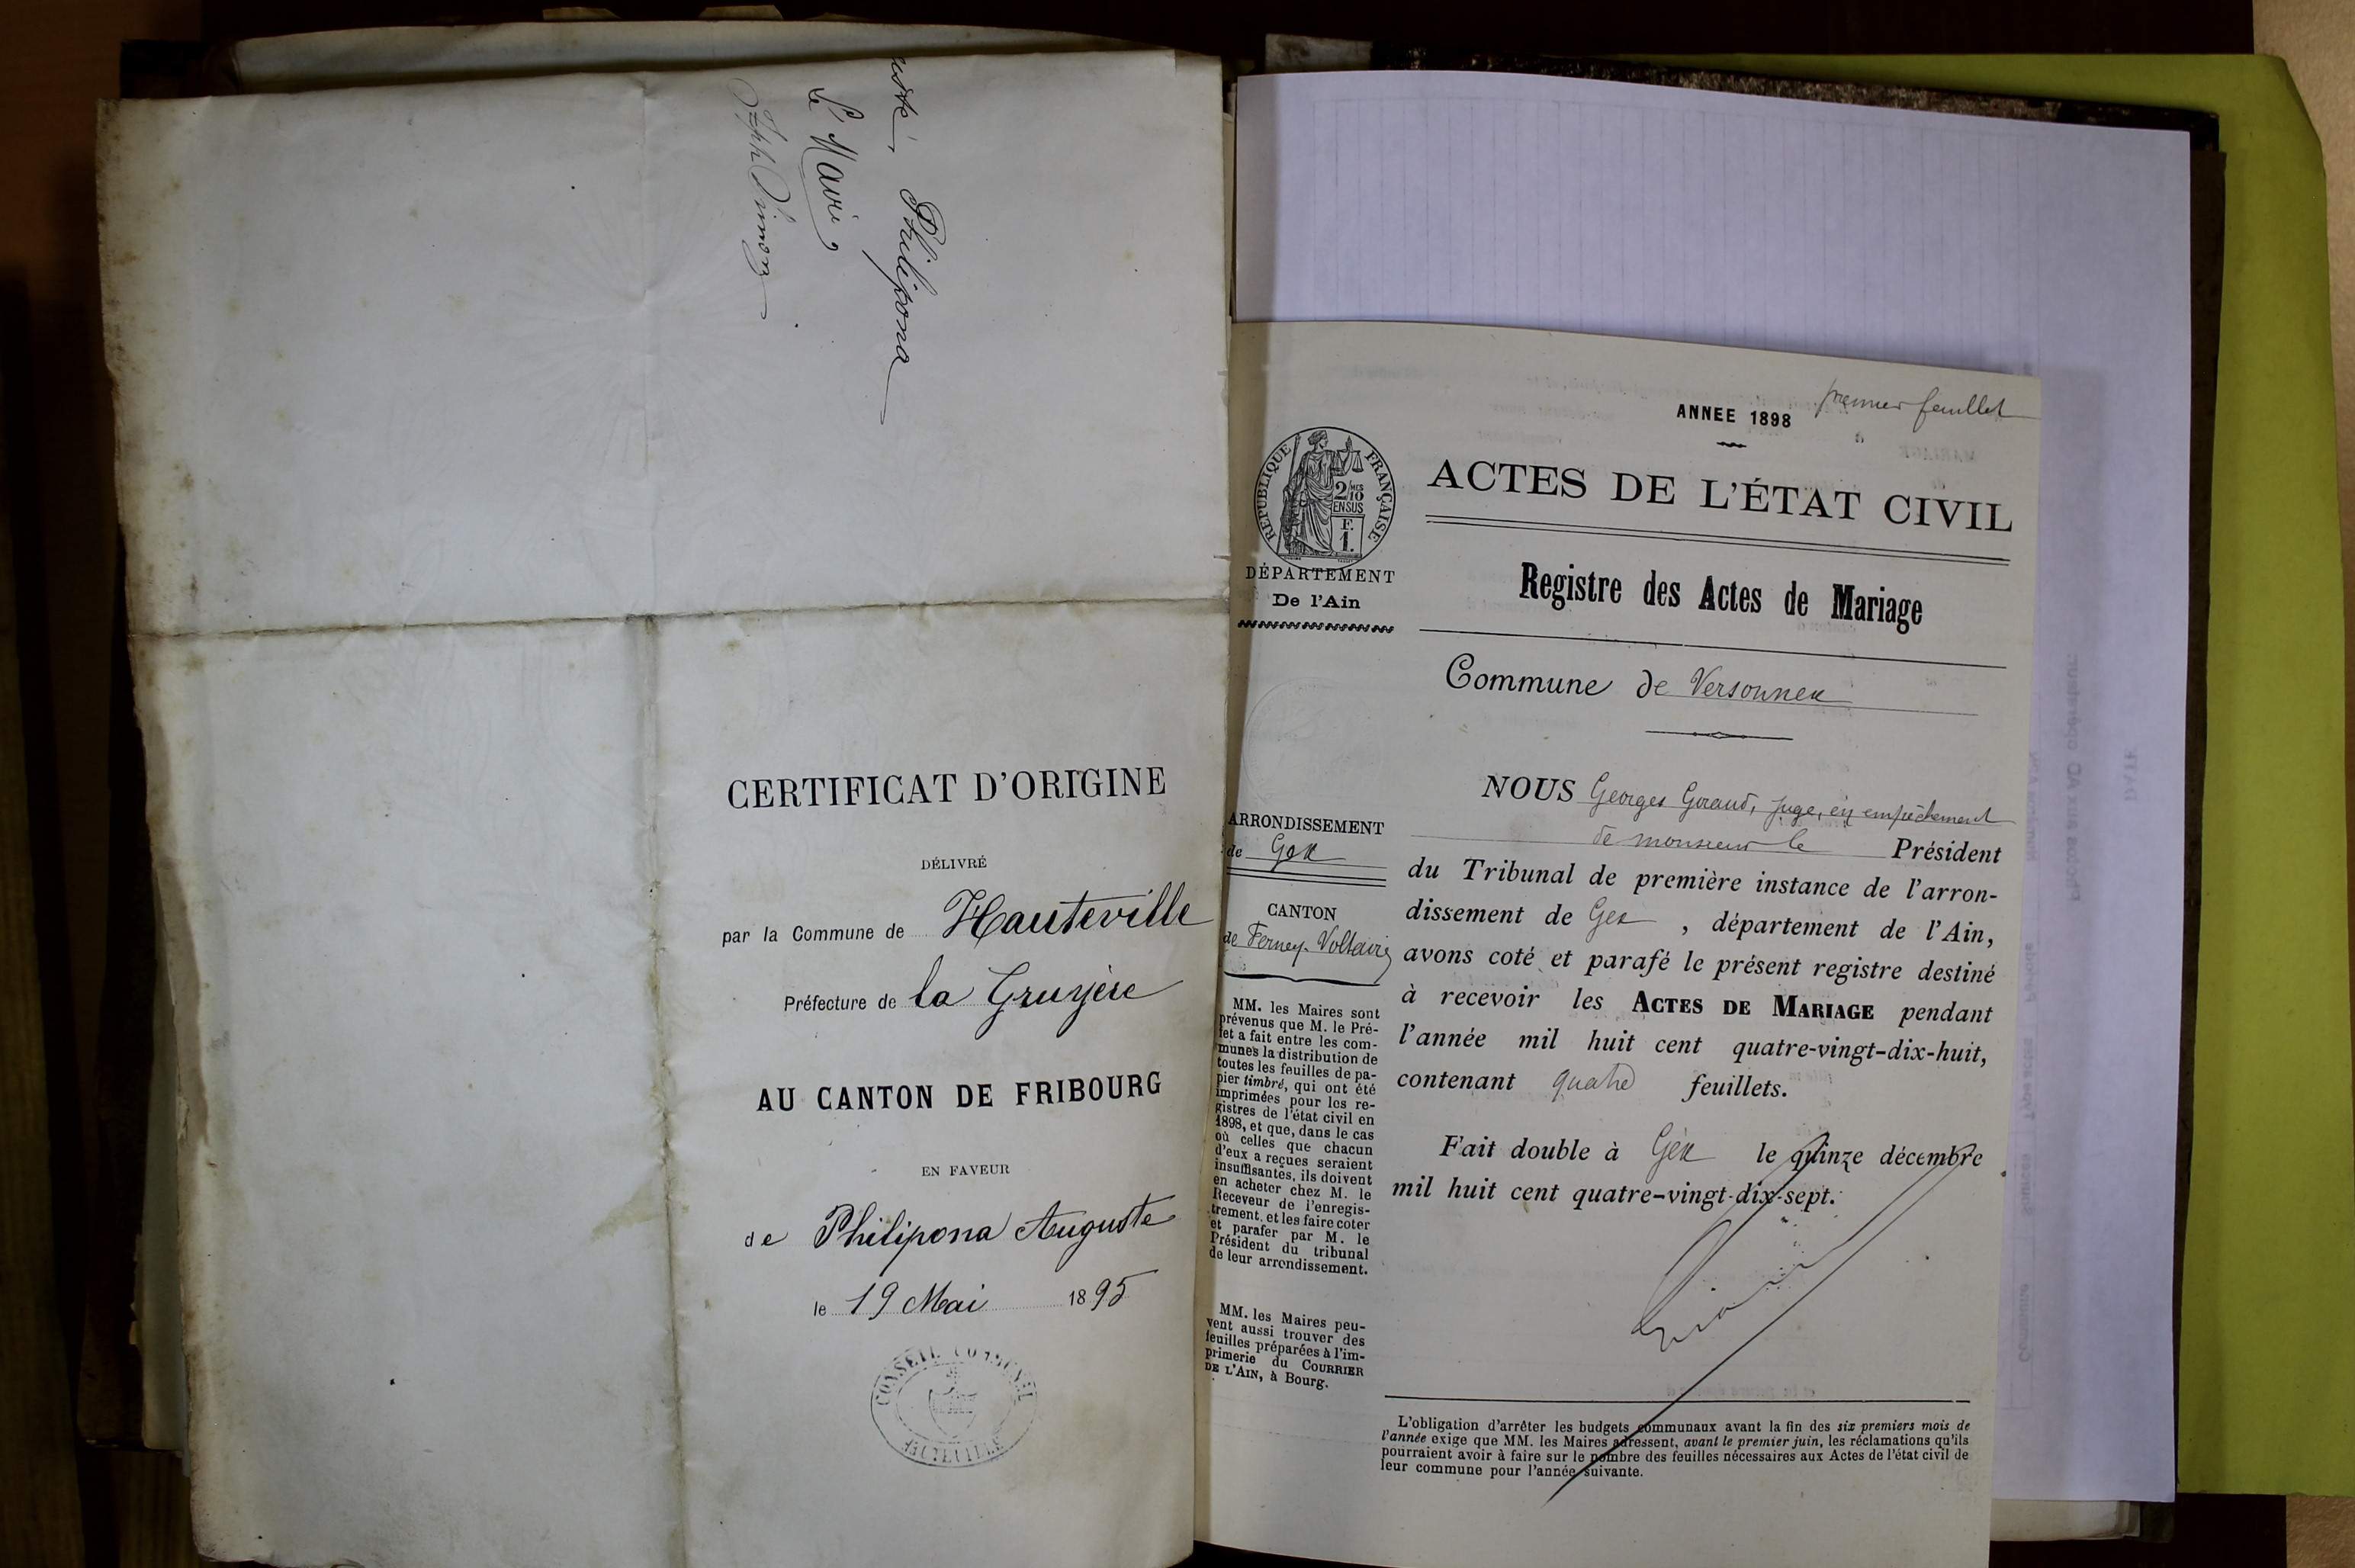 Philipona
Le Maire
CERTIFICAT D'ORIGINE
DÉLIVRÉ
par la Commune de Hauteville
Préfecture de la Gruyère
AU CANTON DE FRIBOURG
EN FAVEUR
de Philipona Auguste
le 19 Mai 1895
CONSEIL COMMUNAL
HAUTEVILLE
premier feuillet
ANNEE 1898
RÉPUBLIQUE FRANÇAISE
2/10 MES
EN SUS
F.
1.
ACTES DE L'ÉTAT CIVIL
DÉPARTEMENT
De l'Ain
Registre des Actes de Mariage
Commune de Versonnex
ARRONDISSEMENT
de Gex
CANTON
de Ferney-Voltaire
MM. les Maires sont
prévenus que M. le Pré-
fet a fait entre les com-
munes la distribution de
toutes les feuilles de pa-
pier timbré, qui ont été
imprimées pour les re-
gistres de l'état civil en
1898, et que, dans le cas
où celles que chacun
d'eux a reçues seraient
insuffisantes, ils doivent
en acheter chez M. le
Receveur de l'enregis-
trement, et les faire coter
et parafer par M. le
Président du tribunal
de leur arrondissement.
MM. les Maires peu-
vent aussi trouver des
feuilles préparées à l'im-
primerie du COURRIER
DE L'AIN, à Bourg.
NOUS Georges Giraud, juge, en empêchement
de monsieur le Président
du Tribunal de première instance de l'arron-
dissement de Gex , département de l'Ain,
avons coté et parafé le présent registre destiné
à recevoir les ACTES DE MARIAGE pendant
l'année mil huit cent quatre-vingt-dix-huit,
contenant quatre feuillets.
Fait double à Gex le quinze décembre
mil huit cent quatre-vingt-dix-sept.
L'obligation d'arrêter les budgets communaux avant la fin des six premiers mois de
l'année exige que MM. les Maires adressent, avant le premier juin, les réclamations qu'ils
pourraient avoir à faire sur le nombre des feuilles nécessaires aux Actes de l'état civil de
leur commune pour l'année suivante.